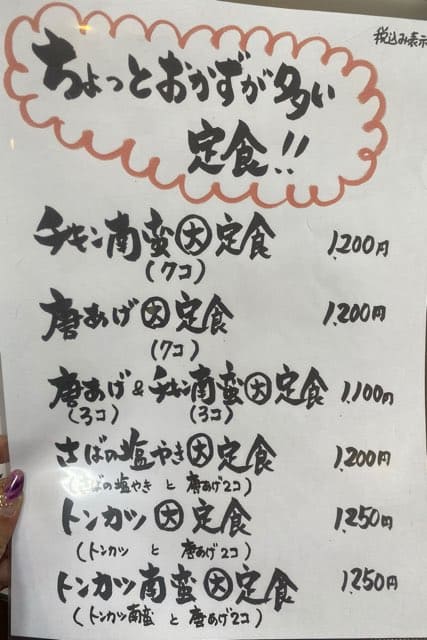 税込み表示
ちょっとおかずが多い
定食!!
チキン南蛮大定食 1,200円
(7コ)
唐あげ大定食 1,200円
(7コ)
唐あげ&チキン南蛮大定食 1,100円
(3コ) (3コ)
さばの塩やき大定食 1,200円
(さばの塩やき と 唐あげ2コ)
トンカツ大定食 1,250円
(トンカツ と 唐あげ2コ)
トンカツ南蛮大定食 1,250円
(トンカツ南蛮 と 唐あげ2コ)